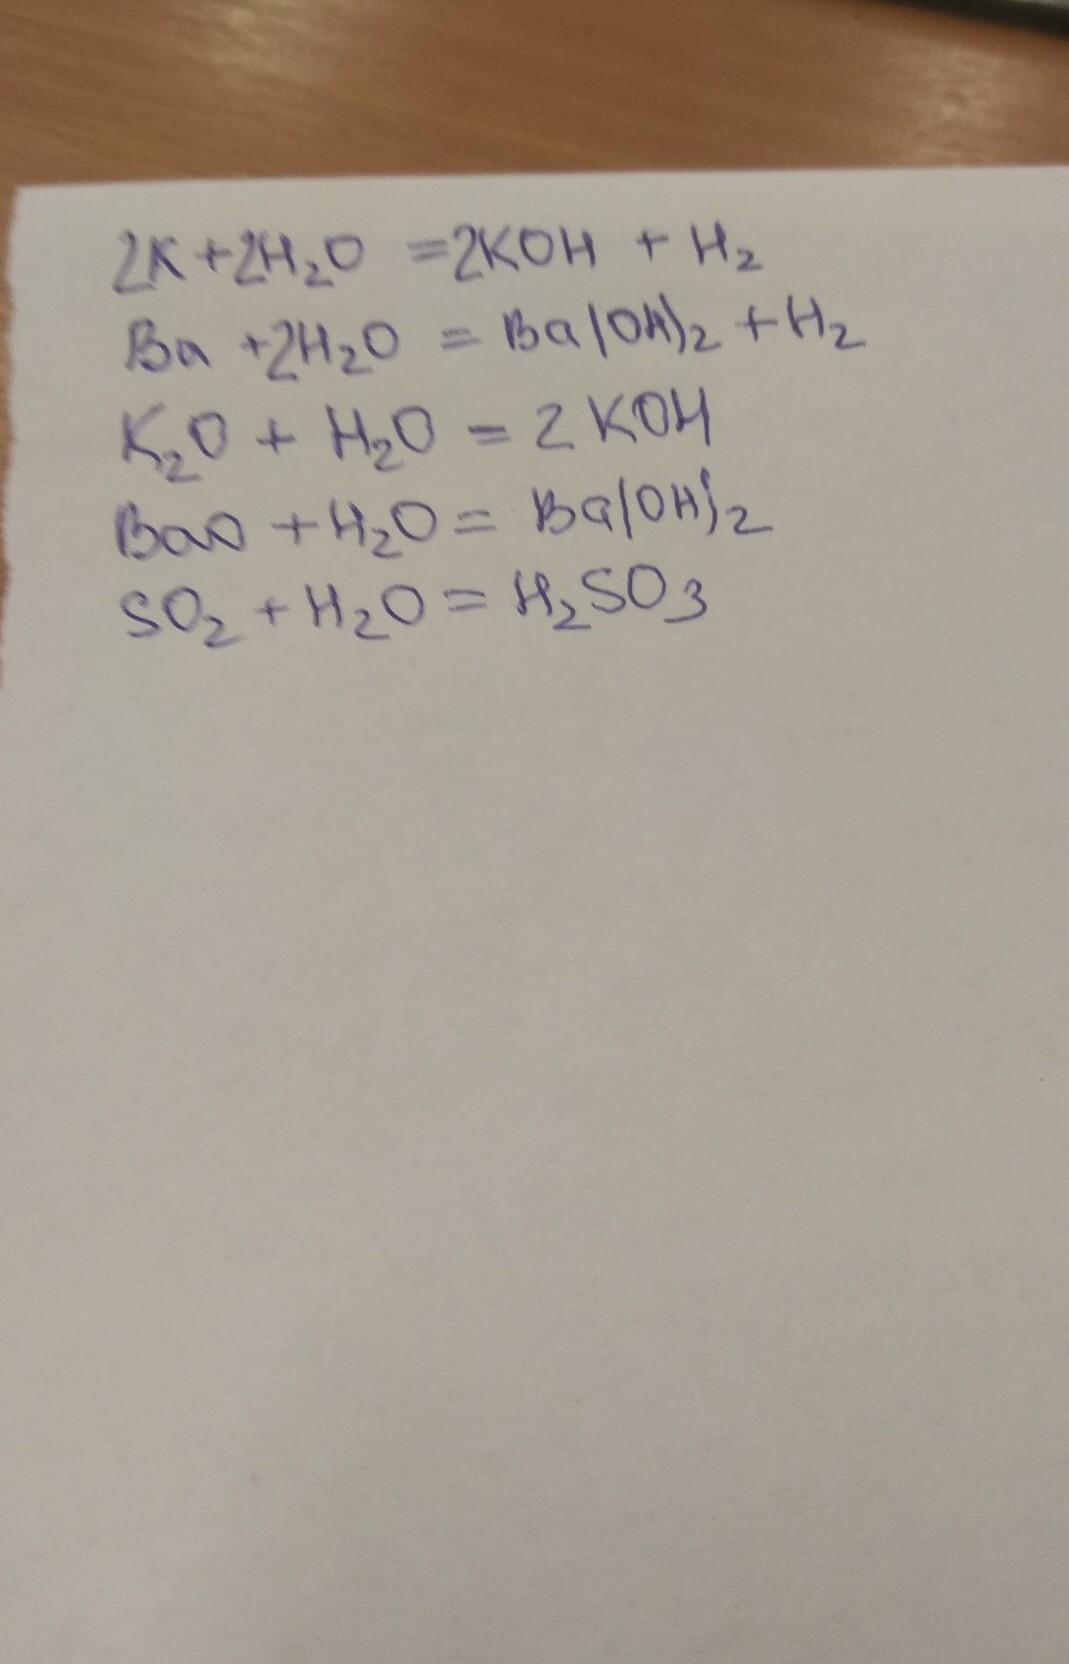 2K+2H₂O =2KOH + H₂
Ba +2H₂O = Ba(OH)₂ +H₂
K₂O + H₂O = 2 KOH
BaO +H₂O= Ba(OH)₂
SO₂ +H₂O= H₂SO₃